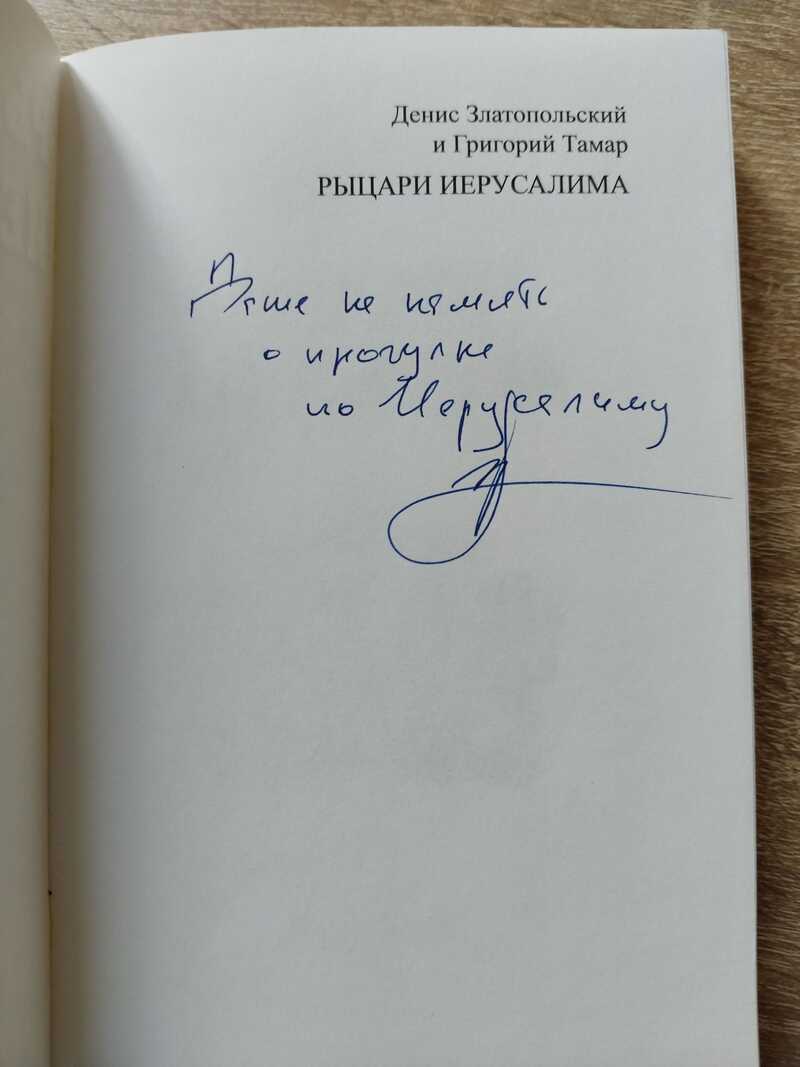 Денис Златопольский
и Григорий Тамар
РЫЦАРИ ИЕРУСАЛИМА
Даше на память
о прогулке
по Иерусалиму